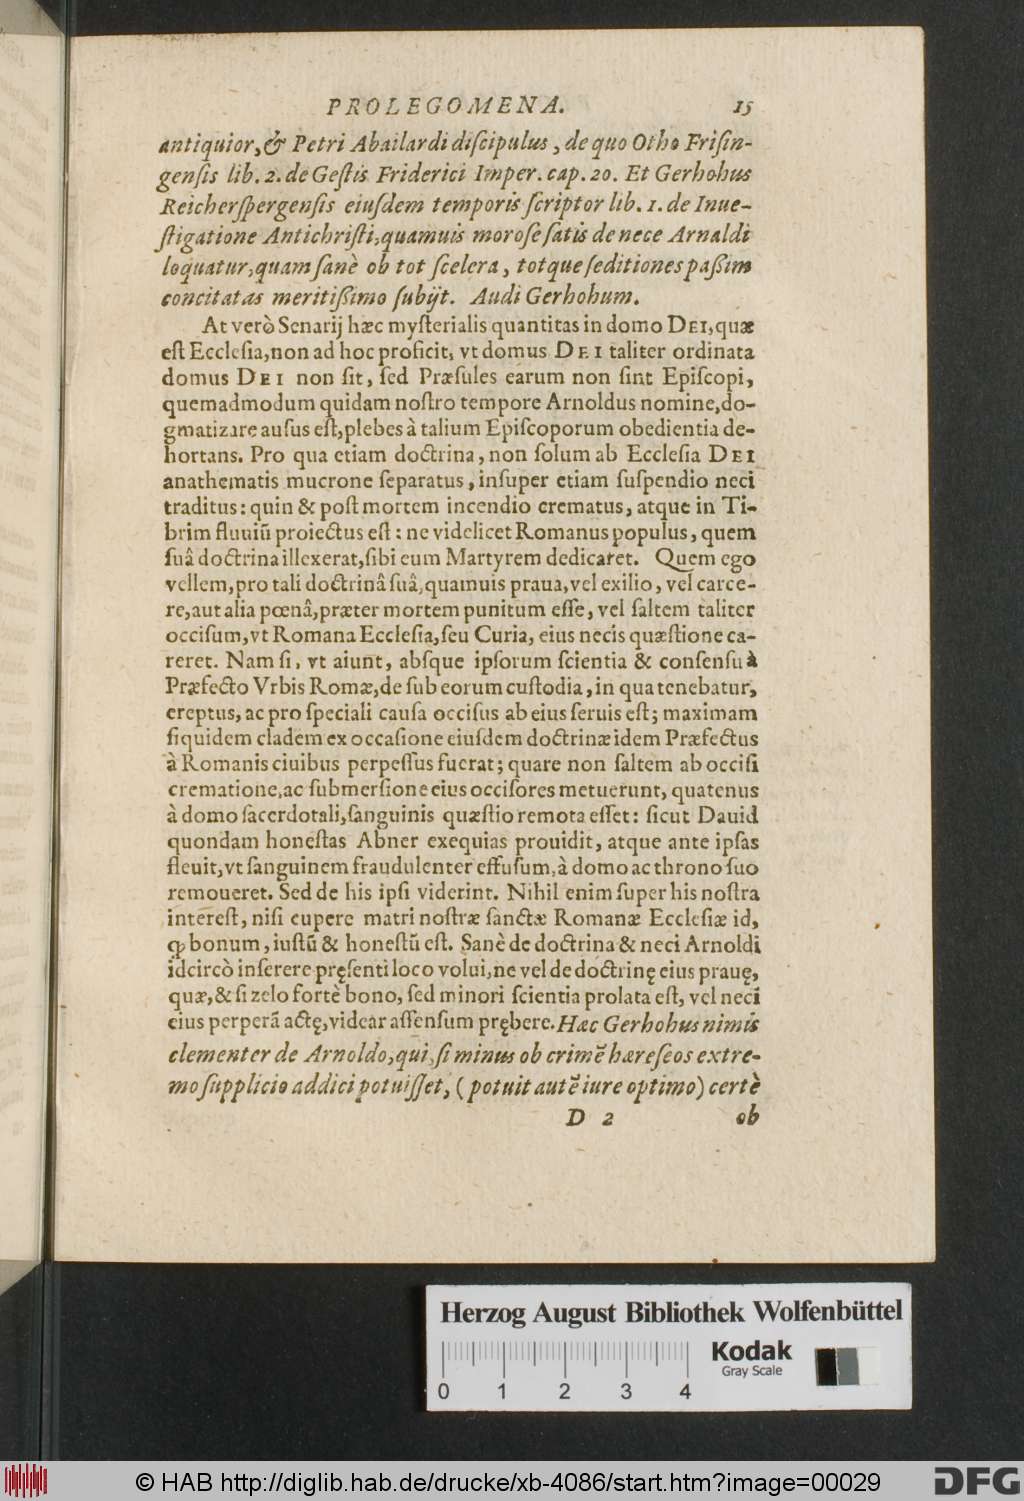 PROLEGOMENA. 15
antiquior, & Petri Abailardi diſcipulus, de quo Otho Friſin-
genſis lib. 2. de Geſtis Friderici Imper. cap. 20. Et Gerhohus
Reicherſpergenſis eiuſdem temporis ſcriptor lib. 1. de Inue-
ſtigatione Antichriſti, quamuis moroſe ſatis de nece Arnaldi
loquatur, quam ſanè ob tot ſcelera, totque ſeditiones paßim
concitatas meritißimo ſubijt. Audi Gerhohum.
At verò Senarij hæc myſterialis quantitas in domo DEI, quæ
eſt Eccleſia, non ad hoc proficit, vt domus DEI taliter ordinata
domus DEI non ſit, ſed Præſules earum non ſint Epiſcopi,
quemadmodum quidam noſtro tempore Arnoldus nomine, do-
gmatizare auſus eſt, plebes à talium Epiſcoporum obedientia de-
hortans. Pro qua etiam doctrina, non ſolum ab Eccleſia DEI
anathematis mucrone ſeparatus, inſuper etiam ſuſpendio neci
traditus: quin & poſt mortem incendio crematus, atque in Ti-
brim fluuiũ proiectus eſt: ne videlicet Romanus populus, quem
ſuâ doctrina illexerat, ſibi eum Martyrem dedicaret. Quem ego
vellem, pro tali doctrinâ ſuâ, quamuis praua, vel exilio, vel carce-
re, aut alia pœnâ, præter mortem punitum eſſe, vel ſaltem taliter
occiſum, vt Romana Eccleſia, ſeu Curia, eius necis quæſtione ca-
reret. Nam ſi, vt aiunt, absque ipſorum ſcientia & conſenſu à
Præfecto Vrbis Romæ, de ſub eorum cuſtodia, in qua tenebatur,
ereptus, ac pro ſpeciali cauſa occiſus ab eius ſeruis eſt; maximam
ſiquidem cladem ex occaſione eiuſdem doctrinæ idem Præfectus
à Romanis ciuibus perpeſſus fuerat; quare non ſaltem ab occiſi
crematione, ac ſubmerſione eius occiſores metuerunt, quatenus
à domo ſacerdotali, ſanguinis quæſtio remota eſſet: ſicut Dauid
quondam honeſtas Abner exequias prouidit, atque ante ipſas
fleuit, vt ſanguinem fraudulenter effuſum, à domo ac throno ſuo
remoueret. Sed de his ipſi viderint. Nihil enim ſuper his noſtra
intereſt, niſi cupere matri noſtræ ſanctæ Romanæ Eccleſiæ id,
ꝙ bonum, iuſtũ & honeſtũ eſt. Sanè de doctrina & neci Arnoldi
idcircò inſerere pręſenti loco volui, ne vel de doctrinę eius prauę,
quæ, & ſi zelo fortè bono, ſed minori ſcientia prolata eſt, vel neci
eius perperã actę, videar aſſenſum prębere. Hæc Gerhohus nimis
clementer de Arnoldo, qui, ſi minus ob crimẽ hæreſeos extre-
mo ſupplicio addici potuiſſet, (potuit autẽ iure optimo) certè
D 2 ob
Herzog August Bibliothek Wolfenbüttel
Kodak
Gray Scale
0 1 2 3 4
© HAB http://diglib.hab.de/drucke/xb-4086/start.htm?image=00029
DFG